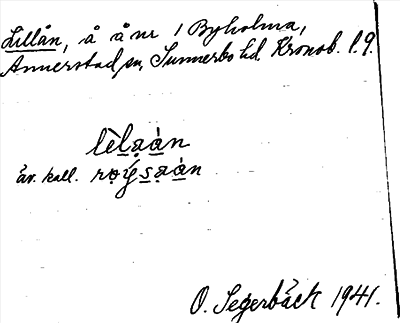 Lillån, å å nr 1 Byholma,
Annerstad sn, Sunnerbo hd. Kronob. l. 9.
lèl̠a̠à̠n
äv. kall. rǫýs̠a̠à̠n
O. Segerbäck 1941.